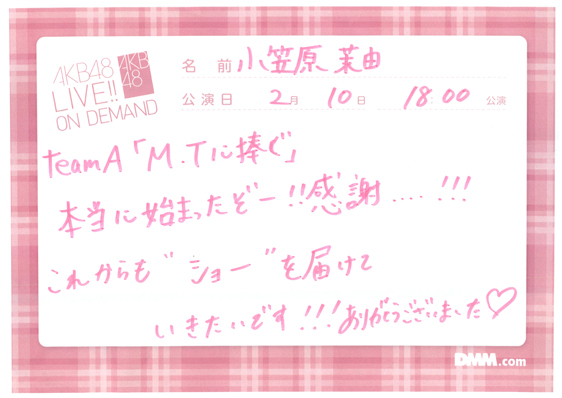 AKB48
LIVE!!
ON DEMAND
AKB
48
名 前 小笠原 茉由
公演日 2月 10日 18:00 公演
teamA「M.Tに捧ぐ」
本当に始まったぞー!!感謝....!!!
これからも"ショー"を届けて
いきたいです!!!ありがとうございました♡
DMM.com